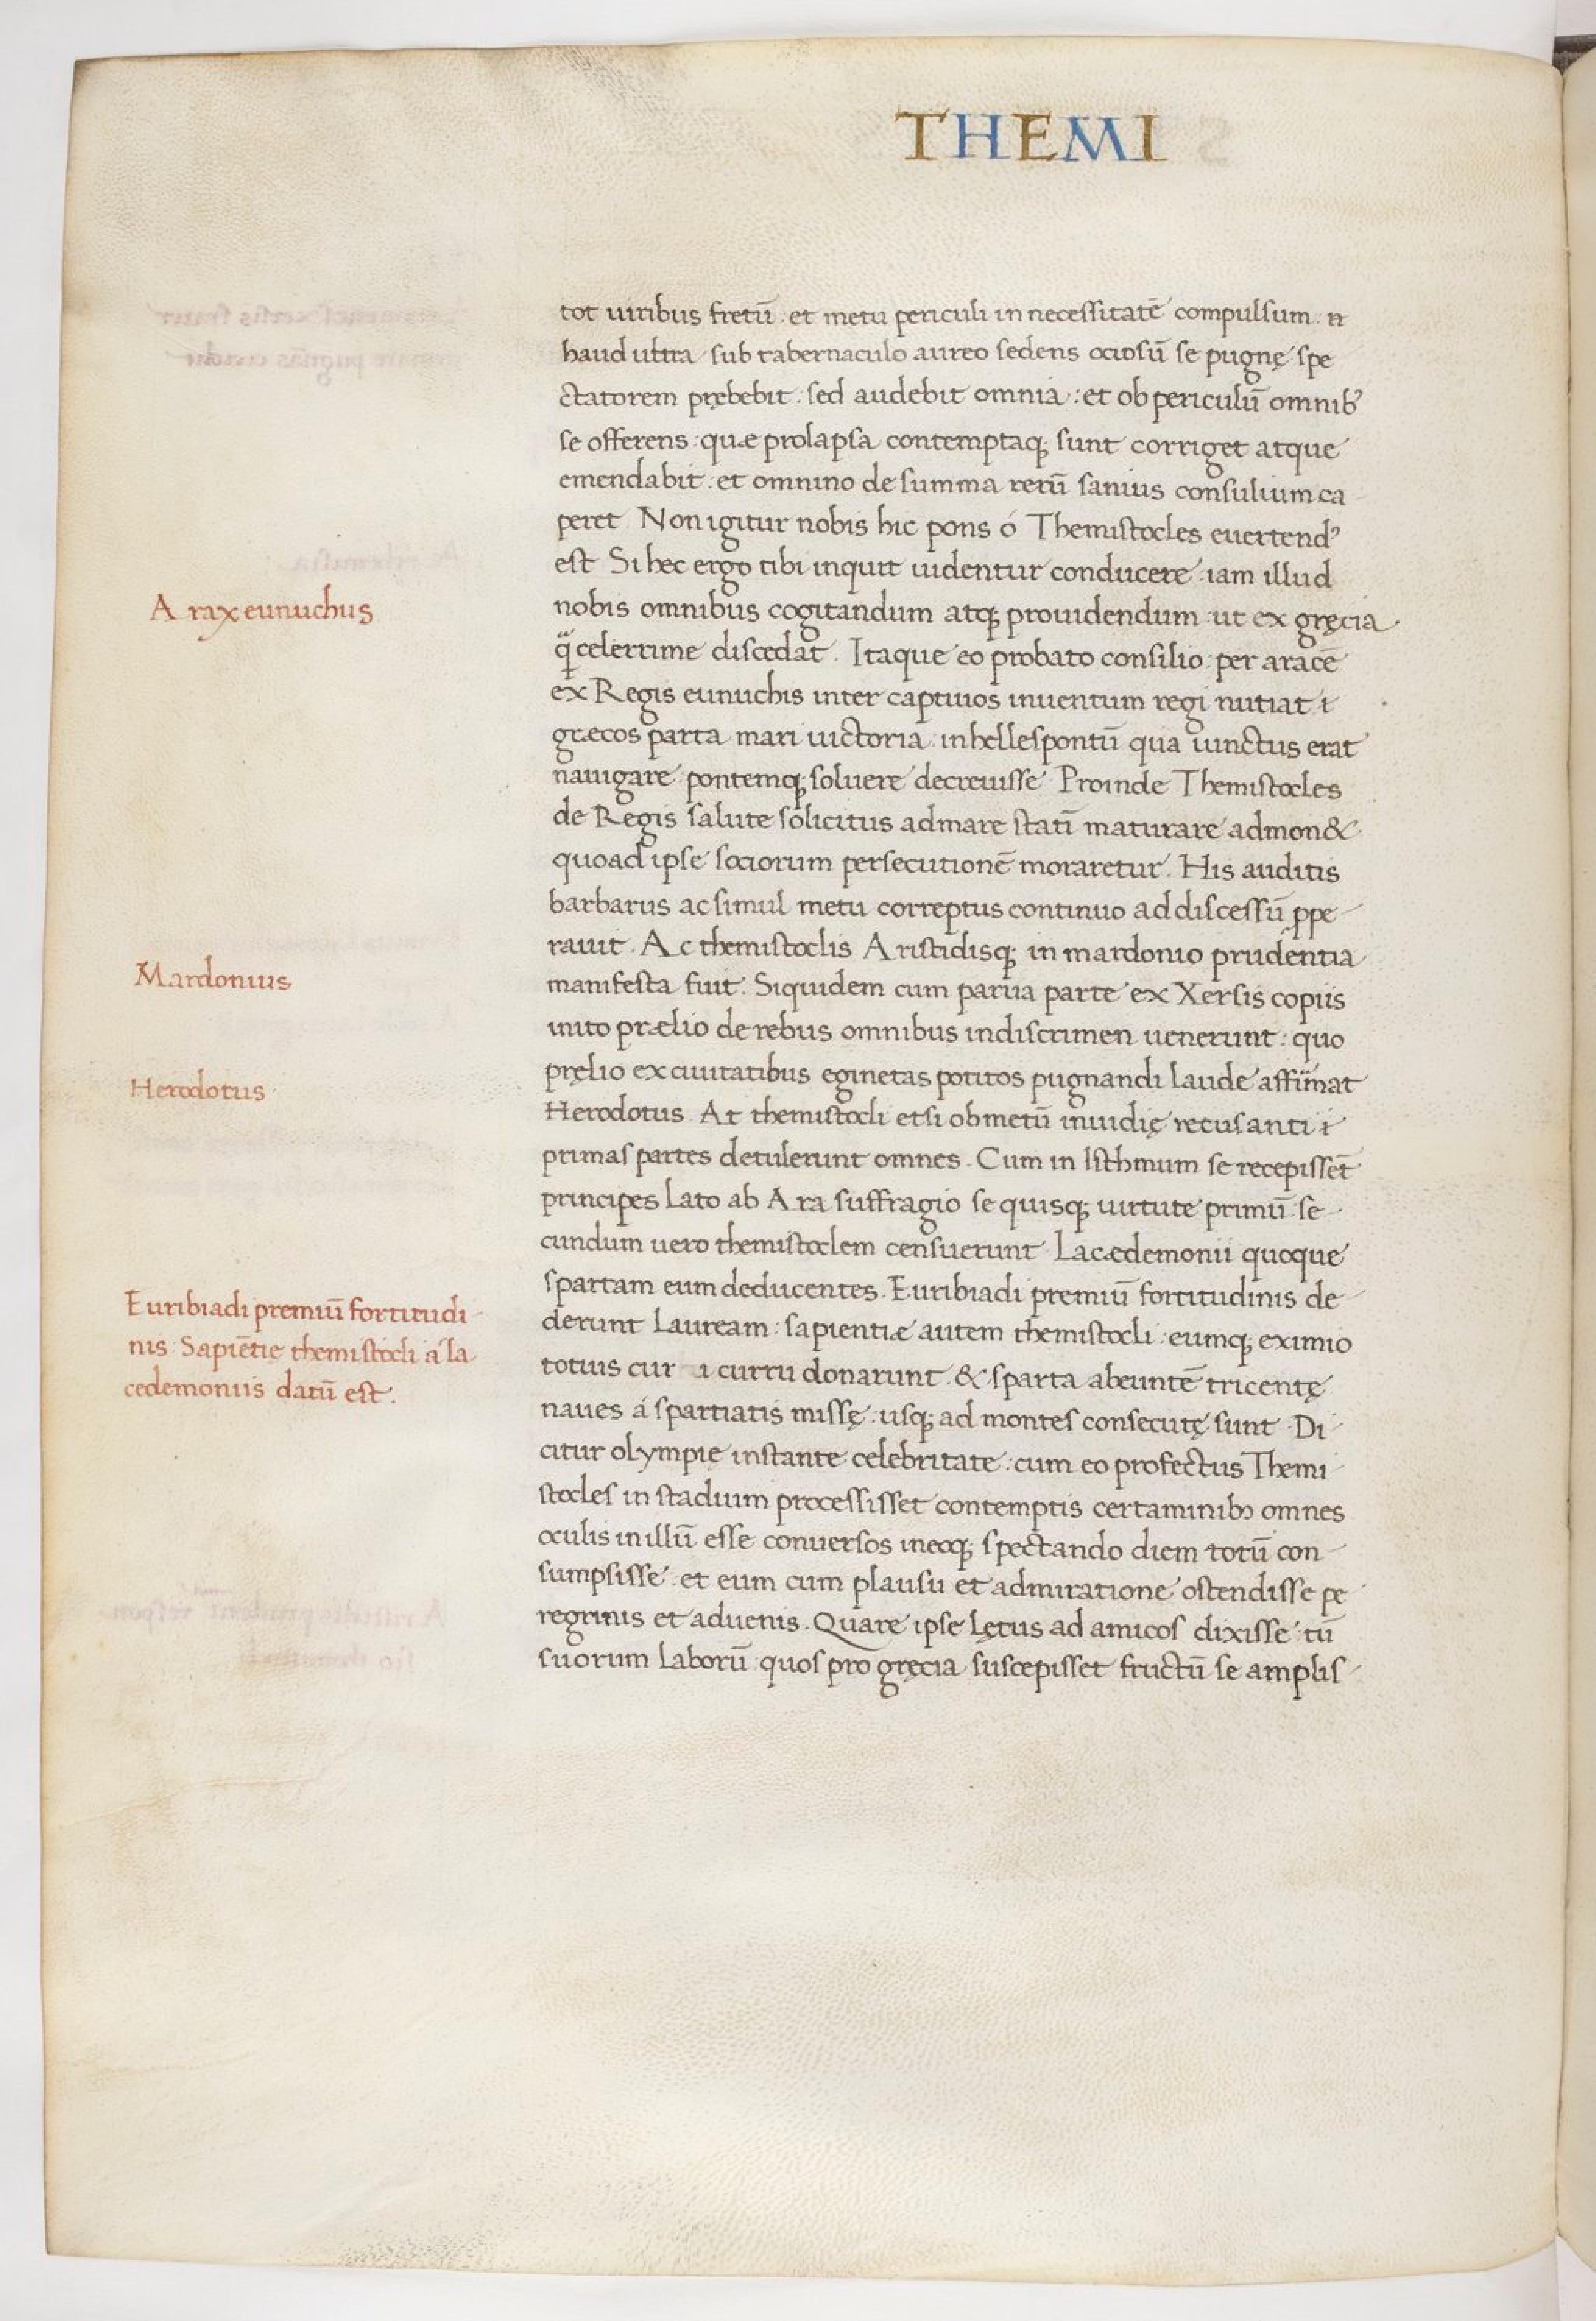 THEMI
tot uiribus fretū et metu periculi in necessitatē compulsum: n̄
haud ultra sub tabernaculo aureo sedens ociosū se pugnę spe
ctatorem prębebit: sed audebit omnia: et ob periculū omnibꝰ
se offerens: quæ prolapsa contemptaq; sunt corriget atque
emendabit: et omnino de summa rerū sanius consulium ca
peret Non igitur nobis hic pons ó Themistocles euertendꝰ
est Si hec ergo tibi inquit uidentur conducere iam illud
A rax eunuchus
nobis omnibus cogitandum atq; prouidendum ut ex gręcia
celerrime discedat. Itaque eo probato consilio: per aracē
ex Regis eunuchis inter captiuos inuentum regi nūtiat
græcos parta mari uictoria in hellespontū qua iunctus erat
nauigare pontemq; soluere decreuisse Proinde Themistocles
de Regis salute solicitus ad mare statī maturare admon&
quoad ipse sociorum persecutionē moraretur. His auditis
barbarus ac simul metu correptus continuo ad discessū ppe
rauit. Ac themistoclis Aristidisq; in mardonio prudentia
Mardonius
manifesta fuit. Siquidem cum parua parte ex Xersis copiis
inito prælio de rebus omnibus indiscrimen uenerunt: quo
Herodotus
pręlio ex ciuitatibus eginetas potitos pugnandi laude affirmat
Herodotus. At themistocli etsi ob metū inuidię recusanti
primas partes detulerunt omnes. Cum in Isthmum se recepissēt
principes lato ab Ara suffragio se quisq; uirtute primū se
cundum uero themistoclem censuerunt Lacædemonii quoque
spartam eum deducentes. Euribiadi premiū fortitudinis de
Euribiadi premiū fortitudi
nis Sapiētię themistocli á la
cedemoniis datū est.
derunt lauream: sapientiæ autem themistocli: eumq; eximio
totius cur i curru donarunt. & sparta abeuntē tricentę
naues á spartiatis missę: usq; ad montes consecutę sunt Di
citur olympię instante celebritate: cum eo profectus Themi
stocles in stadium processisset contemptis certaminibꝫ omnes
oculis in illū esse conuersos ineoq; spectando diem totū con
sumpsisse et eum cum plausu et admiratione ostendisse pe
regrinis et aduenis. Quare ipse lętus ad amicos dixisse tū
suorum laborū quos pro gręcia suscepisset fructū se amplis